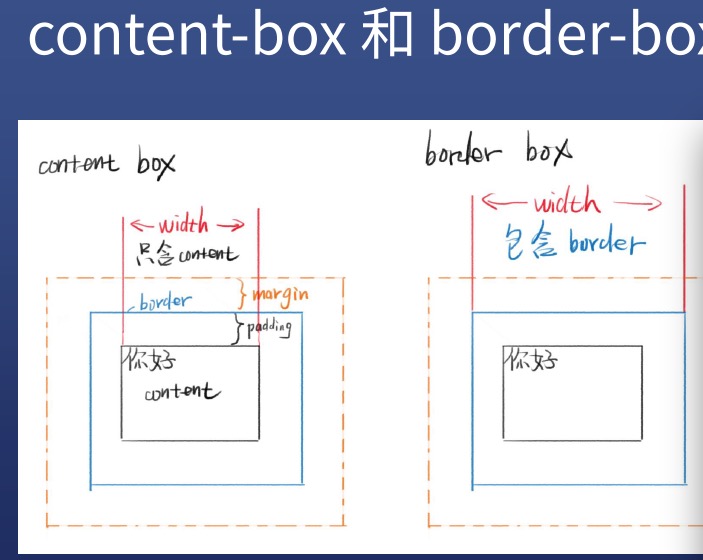 content-box 和 border-box
content box
width
只含 content
border
margin
padding
你好
content
border box
width
包含 border
你好